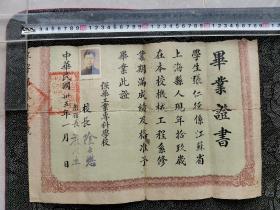 畢業證書
學生張仁俊係江蘇省
上海縣人現年拾玖歲
在本校機械工程系修
業期滿成績及格准予
畢業此證
保華工業專科學校
校長
中華民國卅五年一月 日